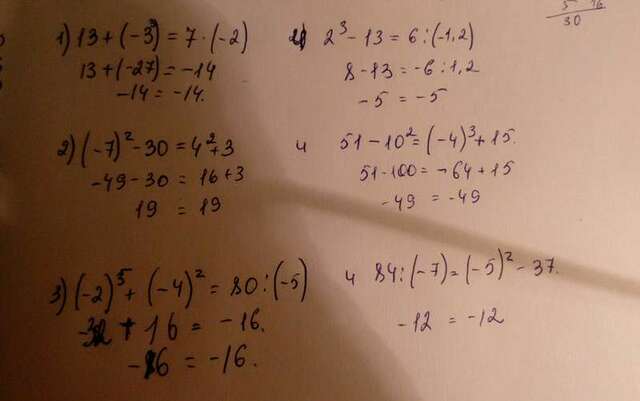 1) 13 + (-3³) = 7 · (-2)
13 + (-27) = -14
-14 = -14.
и 2³ - 13 = 6 : (-1,2)
8 - 13 = -6 : 1,2
-5 = -5
2) (-7)² - 30 = 4² + 3
-49 - 30 = 16 + 3
19 = 19
и 51 - 10² = (-4)³ + 15.
51 - 100 = -64 + 15
-49 = -49
3) (-2)⁵ + (-4)² = 80 : (-5)
-32 + 16 = -16.
-16 = -16.
и 84 : (-7) = (-5)² - 37.
-12 = -12
30